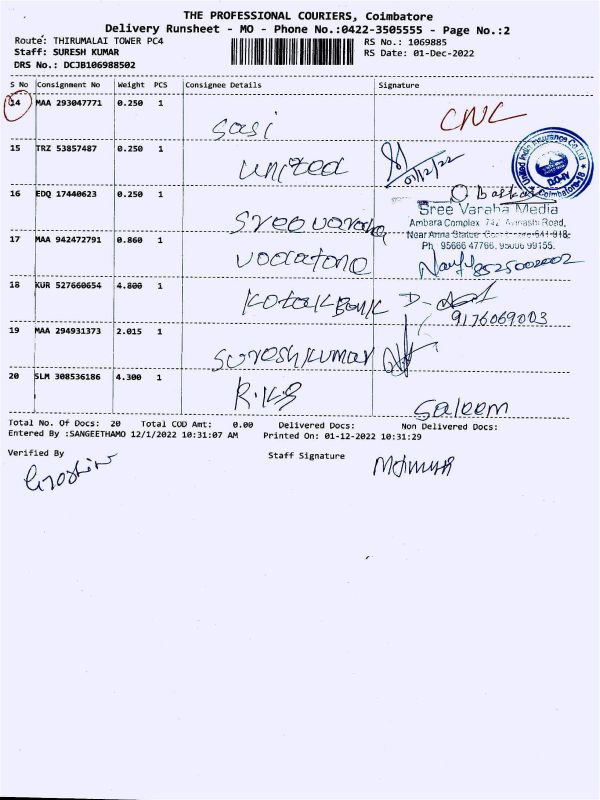 THE PROFESSIONAL COURIERS, Coimbatore
Delivery Runsheet - MO - Phone No.:0422-3505555 - Page No.:2
Route: THIRUMALAI TOWER PC4 RS No.: 1069885
Staff: SURESH KUMAR RS Date: 01-Dec-2022
DRS No.: DCJB106988502
S No Consignment No Weight PCS Consignee Details Signature
14 MAA 293047771 0.250 1 Sasi CNL
15 TRZ 53857487 0.250 1 United 01/12/22
United India Insurance Co Ltd
D.O-IV
Coimbatore-18
16 EDQ 17440623 0.250 1 Sree varaha
Sree Varaha Media
Ambara Complex 742, Avinashi Road,
Near Anna Statue Coimbatore-641 018.
Ph 95666 47766, 95006 99155.
17 MAA 942472791 0.860 1 Vodafone 8525002002
18 KUR 527660654 4.800 1 Kotak Bank 9176069003
19 MAA 294931373 2.015 1 Sureshkumar
20 SLM 308536186 4.300 1 R.K.S Saleem
Total No. Of Docs: 20 Total COD Amt: 0.00 Delivered Docs: Non Delivered Docs:
Entered By :SANGEETHAMO 12/1/2022 10:31:07 AM Printed On: 01-12-2022 10:31:29
Verified By Staff Signature